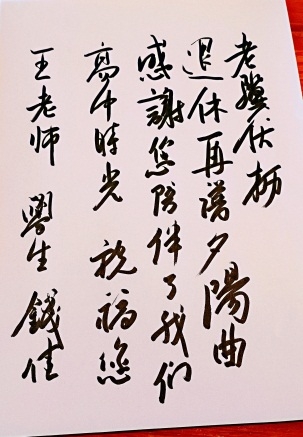 老驥伏枥
退休再譜夕陽曲
感謝您陪伴了我们
高中時光 祝福您
王老师 學生 錢佳